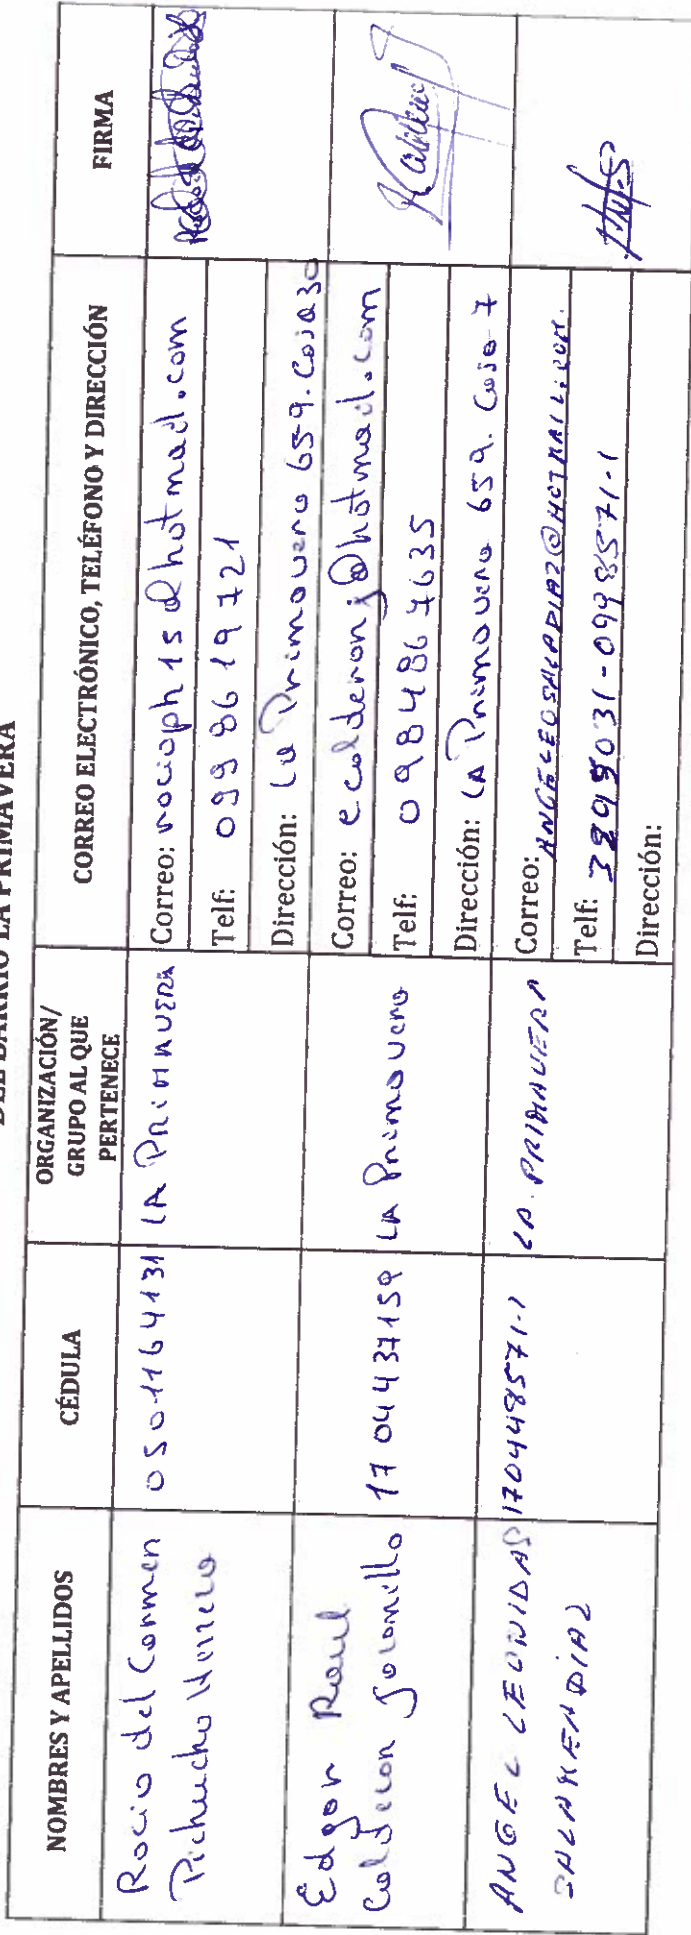 DEL BARRIO LA PRIMAVERA
NOMBRES Y APELLIDOS
CÉDULA
ORGANIZACIÓN/
GRUPO AL QUE
PERTENECE
CORREO ELECTRÓNICO, TELÉFONO Y DIRECCIÓN
FIRMA
Rocio del Carmen
Pichucho Herrera
0501164131
LA PRIMAVERA
Correo: rocioph15@hotmail.com
Telf: 0998619721
Dirección: La Primavera 659. Casa 30
Edgar Raul
Calderon Jaramillo
1704437159
LA Primavera
Correo: ecalderonj@hotmail.com
Telf: 0984867635
Dirección: LA Primavera 659. Casa 7
ANGEL LEONIDAS
DIAZ
170448571-1
LA PRIMAVERA
Correo:
Telf:
Dirección: